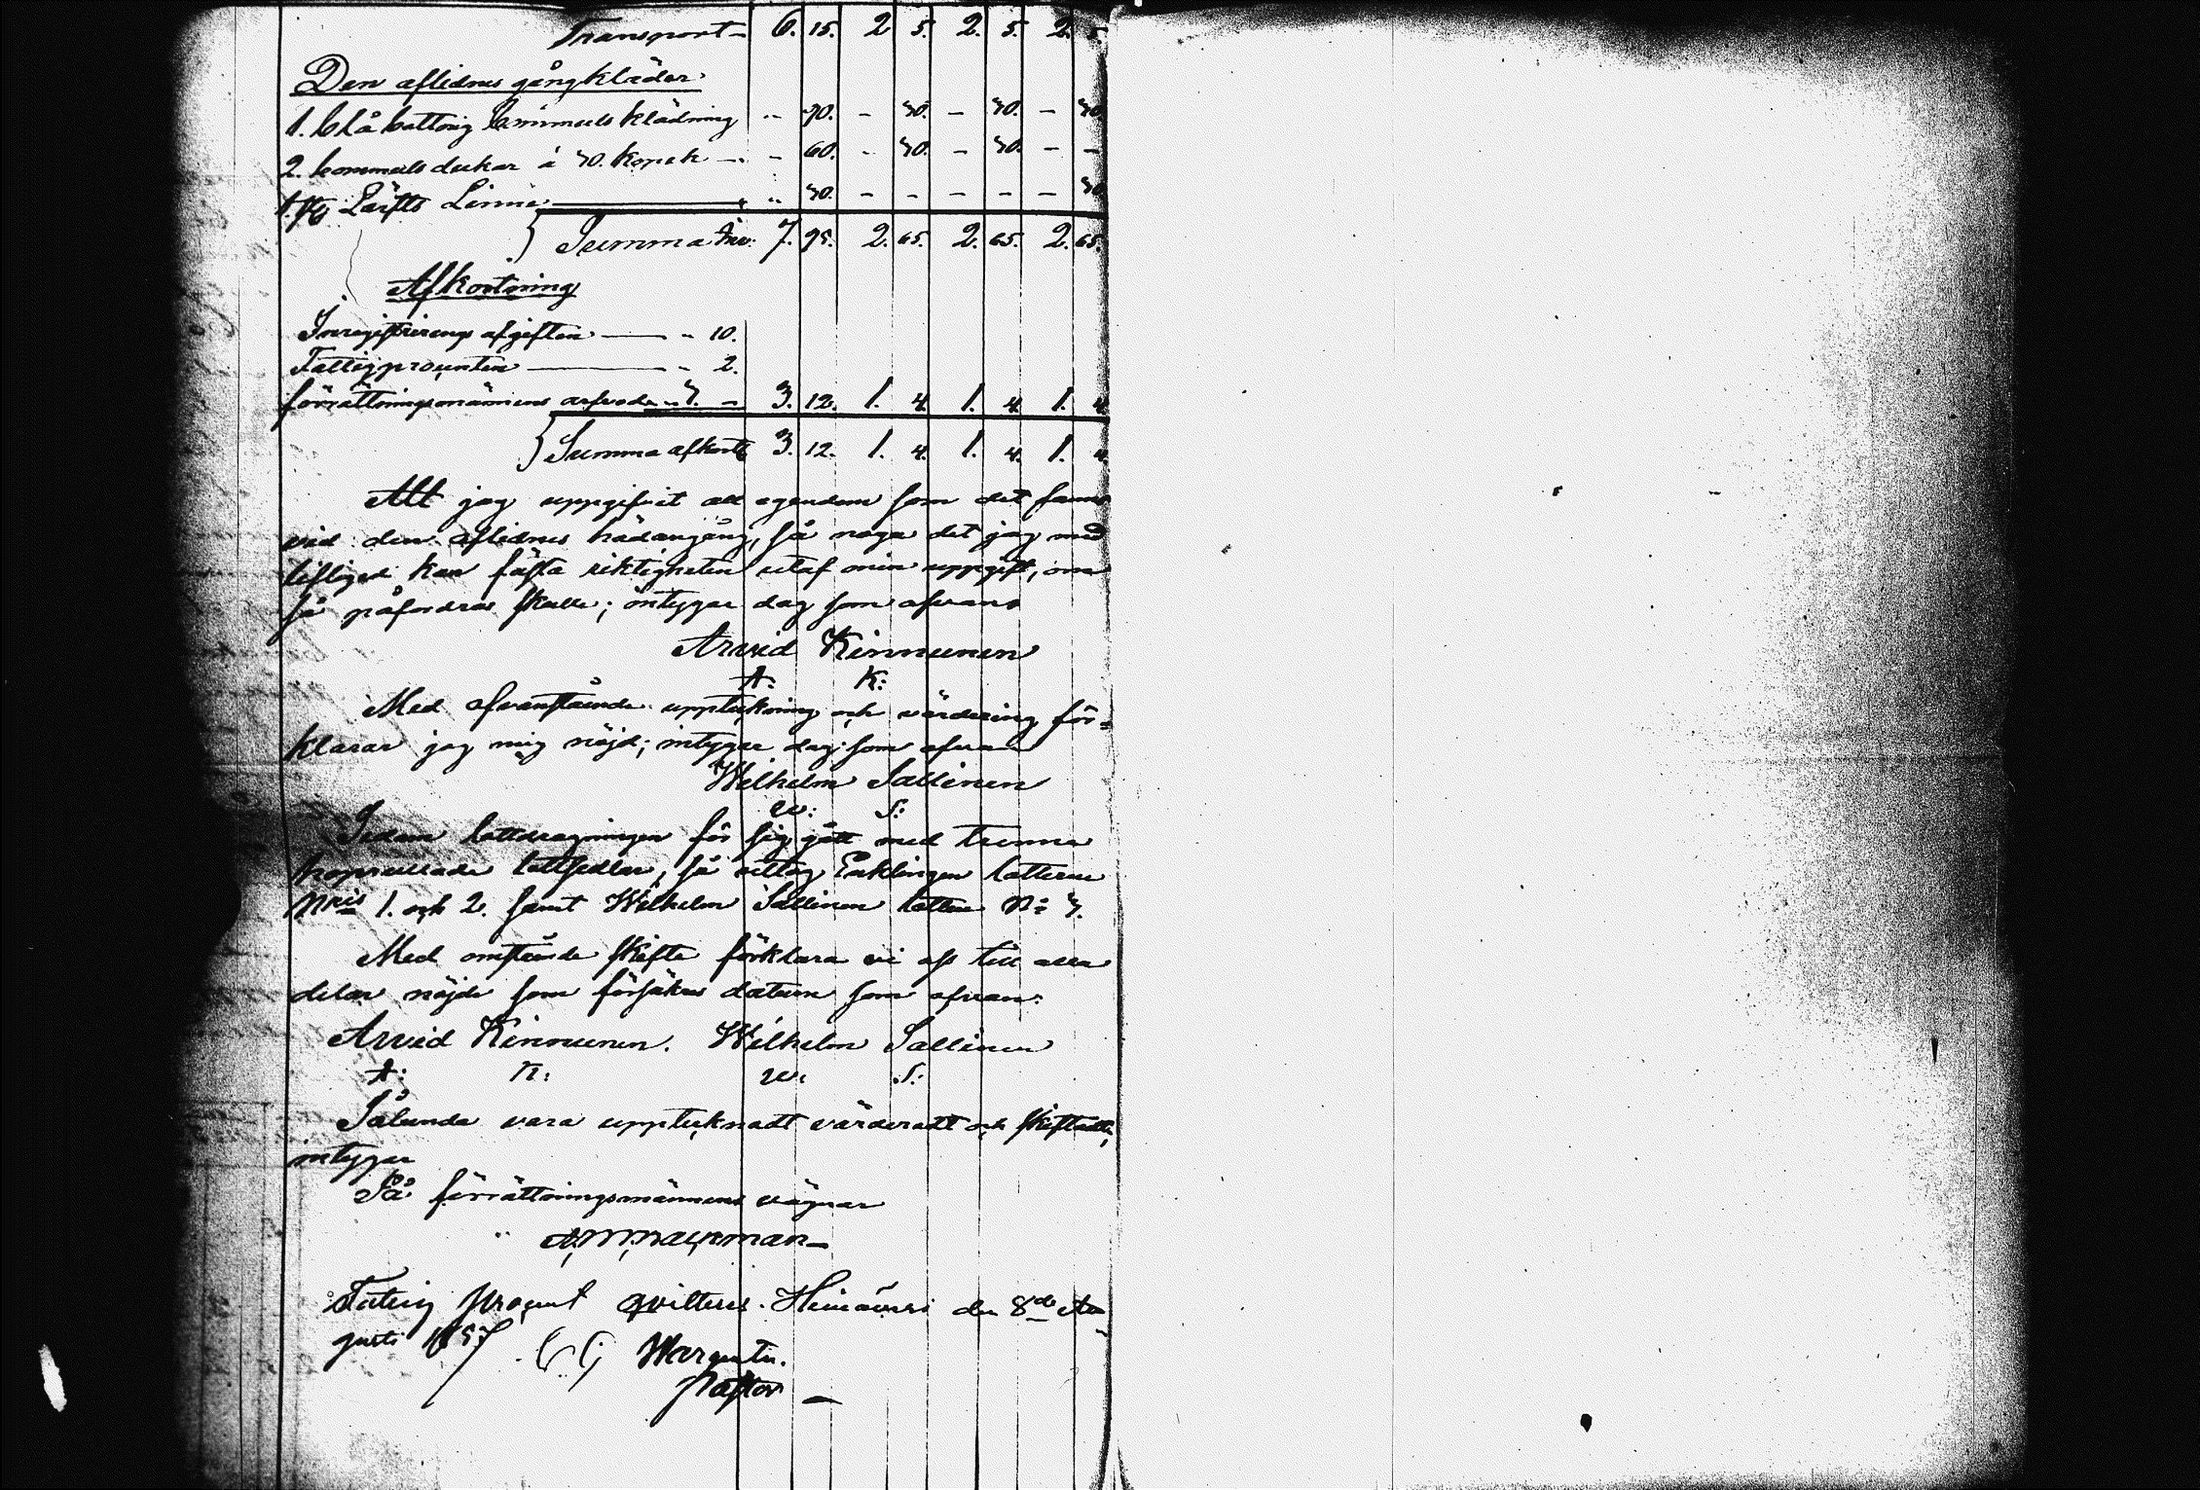 Transport — 6. 15. 2 5. 2. 5. 2. 5
Den aflidnes gångkläder.
1. blå battong bommuls klädning „ 90. — 30. — 30. — 30
2. bommuls dukar á 30. kopek — — 60. — 30. — 30. — —
1. st Lärfts Linne „ 30. — — — — — 30
Summa Inv: 7. 95. 2. 65. 2. 65. 2. 65.
Afkortning
Inregistrerings afgiften — „ 10.
Fattigprocenten — „ 2.
förrättningsmännens arfvode „ 3. — 3. 12. 1. 4. 1. 4. 1. 4
Summa afkort 3. 12. 1. 4. 1. 4. 1. 4
Att jag uppgifvit all egendom som det fanns
vid den aflidnes hädangång, så noga det jag med
lifliged kan fästa riktigheten utaf min uppgift, om
så påfordras skulle; intygar dag som ofvan
Arvid Kinnunen
A: K:
Med ofvanstående uppteckning och värdering för=
klarar jag mig nöjd; intygar dag som ofvan
Wilhelm Sallinen
W: S:
Sedan lottdragningen för sig gått med trenne
hoprullade lottsedlar, så uttog Enklingen lotterne
Nris 1. och 2. samt Wilhelm Sallinen lotten No 3.
Med omstående skifte förklara vi oss till alla
delar nöjde som försäkras datum som ofvan.
Arvid Kinnunen. Wilhelm Sallinen
A: K: W: S:
Sålunda vara upptecknadt värderadt och skiftadt,
intygar
På förrättningsmännens vägnar
Fattig procent qvitteras. Heinävesi den 8de Au
gusti 1857
Pastor